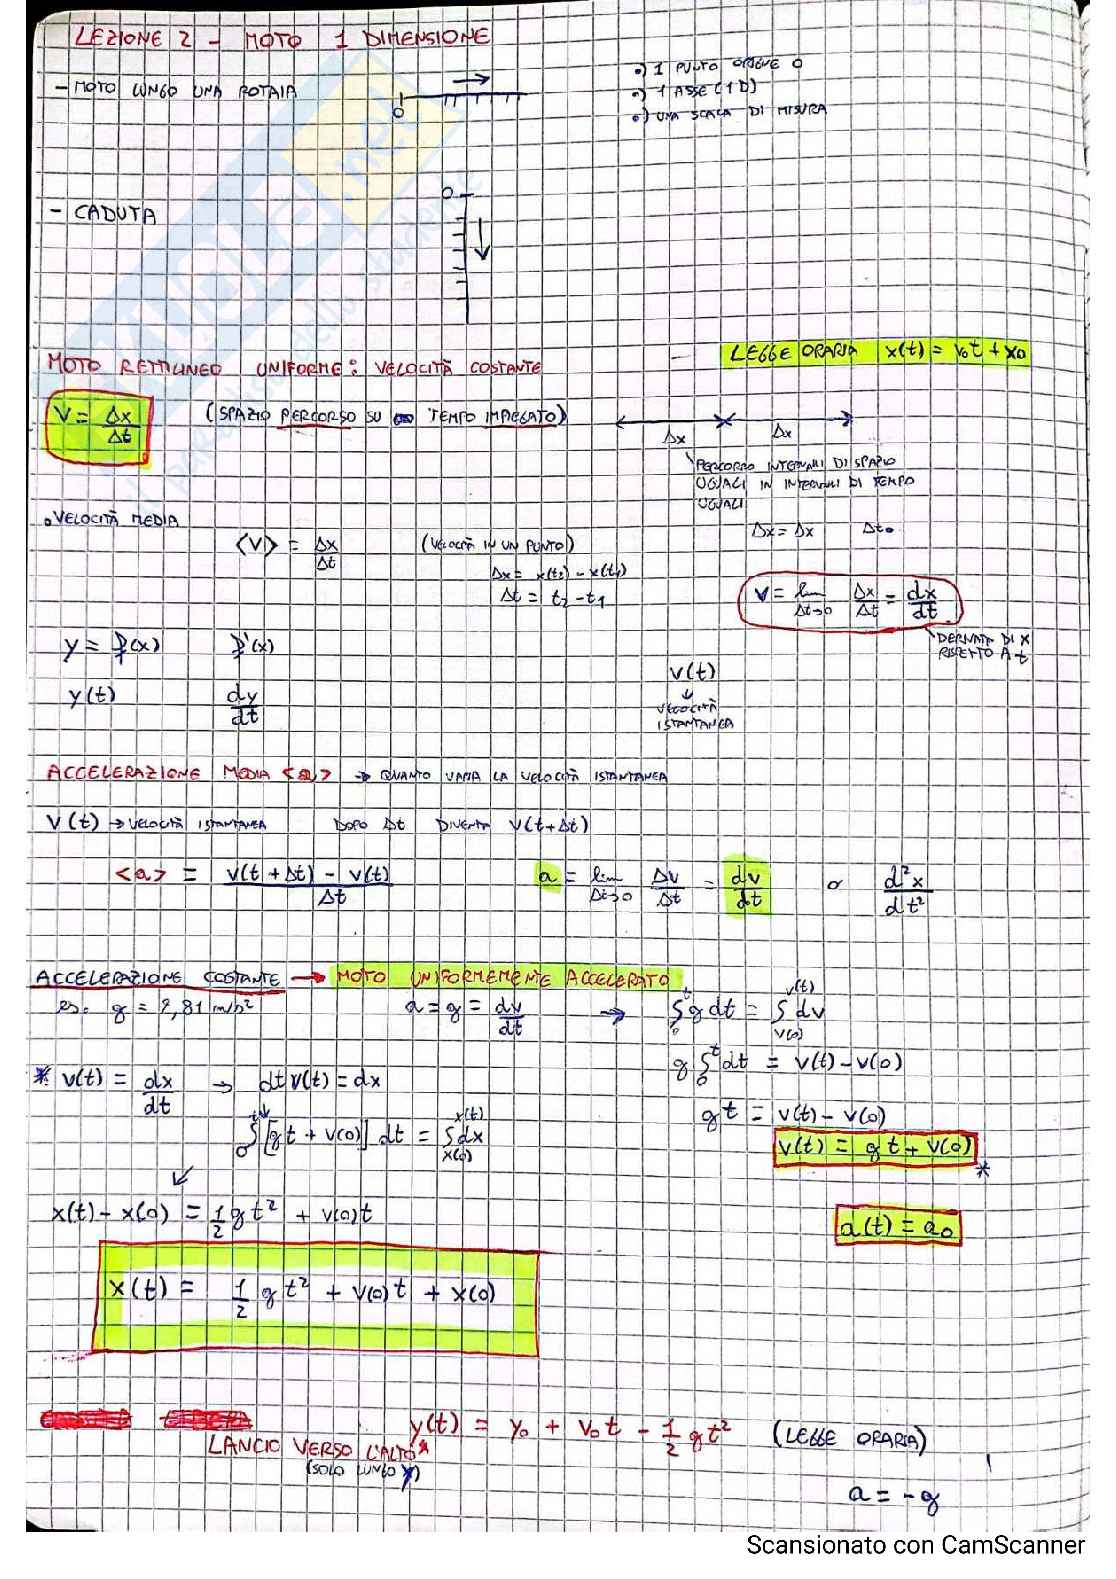 LEZIONE 2 - MOTO 1 DIMENSIONE
- MOTO LUNGO UNA ROTAIA
0
•) 1 PUNTO ORIGINE O
•) 1 ASSE (1D)
•) UNA SCALA DI MISURA
- CADUTA
0
MOTO RETTILINEO UNIFORME: VELOCITÀ COSTANTE
- LEGGE ORARIA x(t) = v₀t + x₀
V = Δx/Δt
(SPAZIO PERCORSO SU TEMPO IMPIEGATO)
Δx Δx
PERCORRO INTERVALLI DI SPAZIO
UGUALI IN INTERVALLI DI TEMPO
UGUALI
• VELOCITÀ MEDIA
<V> = Δx/Δt (VELOCITÀ IN UN PUNTO)
Δx = x(t₂) - x(t₁)
Δt = t₂ - t₁
Δx = Δx Δt₀
V = lim Δt→0 Δx/Δt = dx/dt
DERIVATA DI X
RISPETTO A t
y = f(x) f'(x)
y(t) dy/dt
v(t)
↓
VELOCITÀ
ISTANTANEA
ACCELERAZIONE MEDIA <a> → QUANTO VARIA LA VELOCITÀ ISTANTANEA
V(t) → VELOCITÀ ISTANTANEA DOPO Δt DIVENTA V(t+Δt)
<a> = (v(t + Δt) - v(t))/Δt
a = lim Δt→0 Δv/Δt = dv/dt o d²x/dt²
ACCELERAZIONE COSTANTE → MOTO UNIFORMEMENTE ACCELERATO
es. g = 9,81 m/s²
a = g = dv/dt → ∫₀ᵗ g dt = ∫ᵥ₍₀₎ᵛ⁽ᵗ⁾ dv
g ∫₀ᵗ dt = v(t) - v(0)
gt = v(t) - v(0)
v(t) = gt + v(0) *
* v(t) = dx/dt → dt v(t) = dx
↓
∫₀ᵗ [gt + v(0)] dt = ∫ₓ₍₀₎ˣ⁽ᵗ⁾ dx
x(t) - x(0) = 1/2 gt² + v(0)t
a(t) = a₀
x(t) = 1/2 gt² + v(0)t + x(0)
LANCIO VERSO L'ALTO
(SOLO LUNGO y)
y(t) = y₀ + v₀t - 1/2 gt² (LEGGE ORARIA)
a = -g
Scansionato con CamScanner